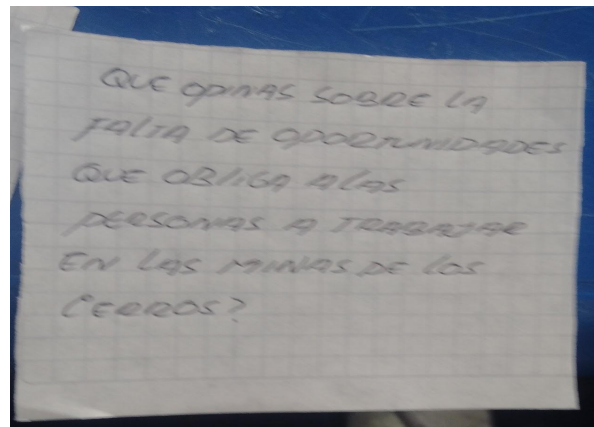 QUE OPINAS SOBRE LA
FALTA DE OPORTUNIDADES
QUE OBLIGA A LAS
PERSONAS A TRABAJAR
EN LAS MINAS DE LOS
CERROS?